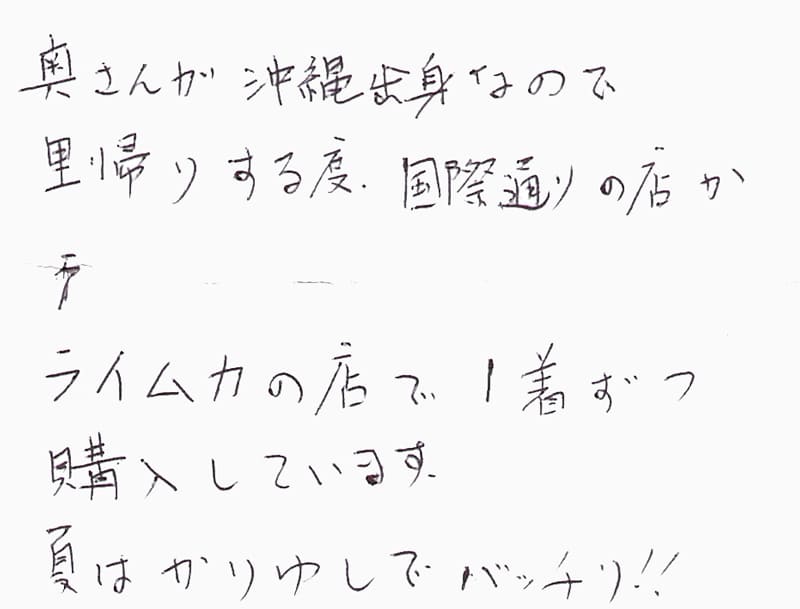 奥さんが沖縄出身なので
里帰りする度、国際通りの店か
ライムカの店で1着ずつ
購入しています。
夏はかりゆしでバッチリ!!